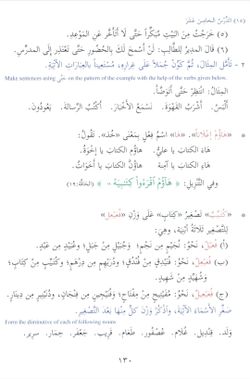 (١٥) الدَّرْسُ الخَامِسَ عَشَرَ
(٥) خَرَجْتُ مِنَ البَيْتِ مُبَكِّراً حَتَّى لَا أَتَأَخَّرَ عَنِ المَوْعِدِ.
(٦) قَالَ المُدِيرُ لِلطَّالِبِ: لَنْ أَسْمَحَ لَكَ بِالحُضُورِ حَتَّى تَعْتَذِرَ إِلَى المدرِّسِ.
٢ – تَأَمَّلِ المِثَالَ، ثُمَّ كَوِّنْ جُمَلاً عَلَى غِرَارِهِ، مُسْتَعِيناً بِالعِبَارَاتِ الآتِيَةِ.
Make sentences using حَتَّى on the pattern of the example with the help of the verbs given below.
المِثَالُ: انْتَظِرْ حَتَّى أَتَوَضَّأَ.
أَلْبَسُ. أَشْرَبُ القَهْوَةَ. نَسْمَعُ الأَخْبَارَ. أَكْتُبُ الرِّسَالَةَ. يَعُودُونَ.
«هَاؤُمُ اقْرَءُوا»، «هَا» اسْمُ فِعْلٍ بِمَعْنَى «خُذْ»، تَقُولُ:
هَاءَ الكِتَابَ يَا عَلِيُّ. هَاؤُمُ الكِتَابَ يَا إِخْوَةُ.
هَاءِ الكِتَابَ يَا آمِنَةُ. هَاؤُنَّ الكِتَابَ يَا أَخَوَاتُ.
وفِي التَّنْزِيلِ: ﴿ هَاؤُمُ ٱقْرَءُوا۟ كِتَٰبِيَهْ ﴾ (الحَاقَّة: ١٩)
«كُتَيِّبٌ» تَصْغِيرُ «كِتَابٍ» عَلَى وَزْنِ «فُعَيْعِلٍ»
لِلتَّصْغِيرِ ثَلَاثَةُ أَبْنِيَةٍ، وَهِيَ:
(أ) فُعَيْلٌ، نَحْوُ: نُجَيْمٍ مِن نَجْمٍ؛ وَجُبَيْلٍ مِنْ جَبَلٍ؛ وَعُبَيْدٍ مِن عَبْدٍ.
(ب) فُعَيْعِلٌ، نَحْوُ: فُنَيْدِقٍ مِنْ فُنْدُقٍ؛ وَدُرَيْهِمٍ مِن دِرْهَمٍ؛ وَكُتَيِّبٍ مِنْ كِتَابٍ؛
(ج) فُعَيْعِيلٌ، نَحْوُ: مُفَيْتِيحٍ مِنْ مِفْتَاحٍ؛ وَفُنَيْجِينٍ مِن فِنْجَانٍ، وَدُنَيْنِيرٍ مِن دِينَارٍ.
صَغِّرِ الأَسْمَاءَ الآتِيَةَ، وَاذْكُرْ وَزْنَ كُلٍّ مِنْهَا بَعْدَ التَّصْغِيرِ.
Form the diminutive of each of following nouns
وَلَد. قِنْدِيل. غُلَام. عُصْفُور. طَعَام. قَرِيب. جَعْفَر. حِمَار. سَرِير.
١٣٠